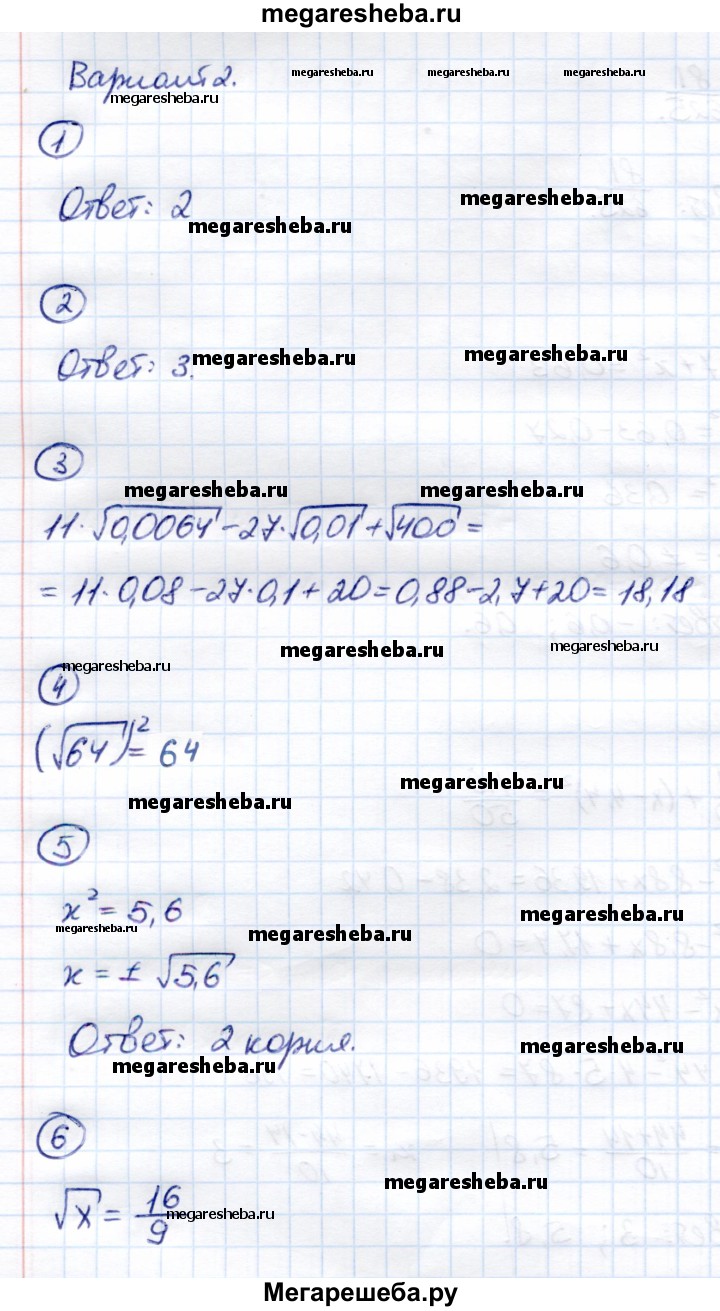 megaresheba.ru
Вариант 2.
megaresheba.ru megaresheba.ru megaresheba.ru
megaresheba.ru
1
Ответ: 2
megaresheba.ru
megaresheba.ru
2
Ответ: 3.
megaresheba.ru
megaresheba.ru
3
megaresheba.ru megaresheba.ru
11·√0,0064-27·√0,01+√400=
= 11·0,08-27·0,1+20=0,88-2,7+20=18,18
megaresheba.ru megaresheba.ru
4
megaresheba.ru
(√64)²= 64
megaresheba.ru
megaresheba.ru
5
x²=5,6
megaresheba.ru megaresheba.ru megaresheba.ru
x=±√5,6
Ответ: 2 корня.
megaresheba.ru
megaresheba.ru
6
megaresheba.ru
√x=16/9
megaresheba.ru
Мегарешеба.ру